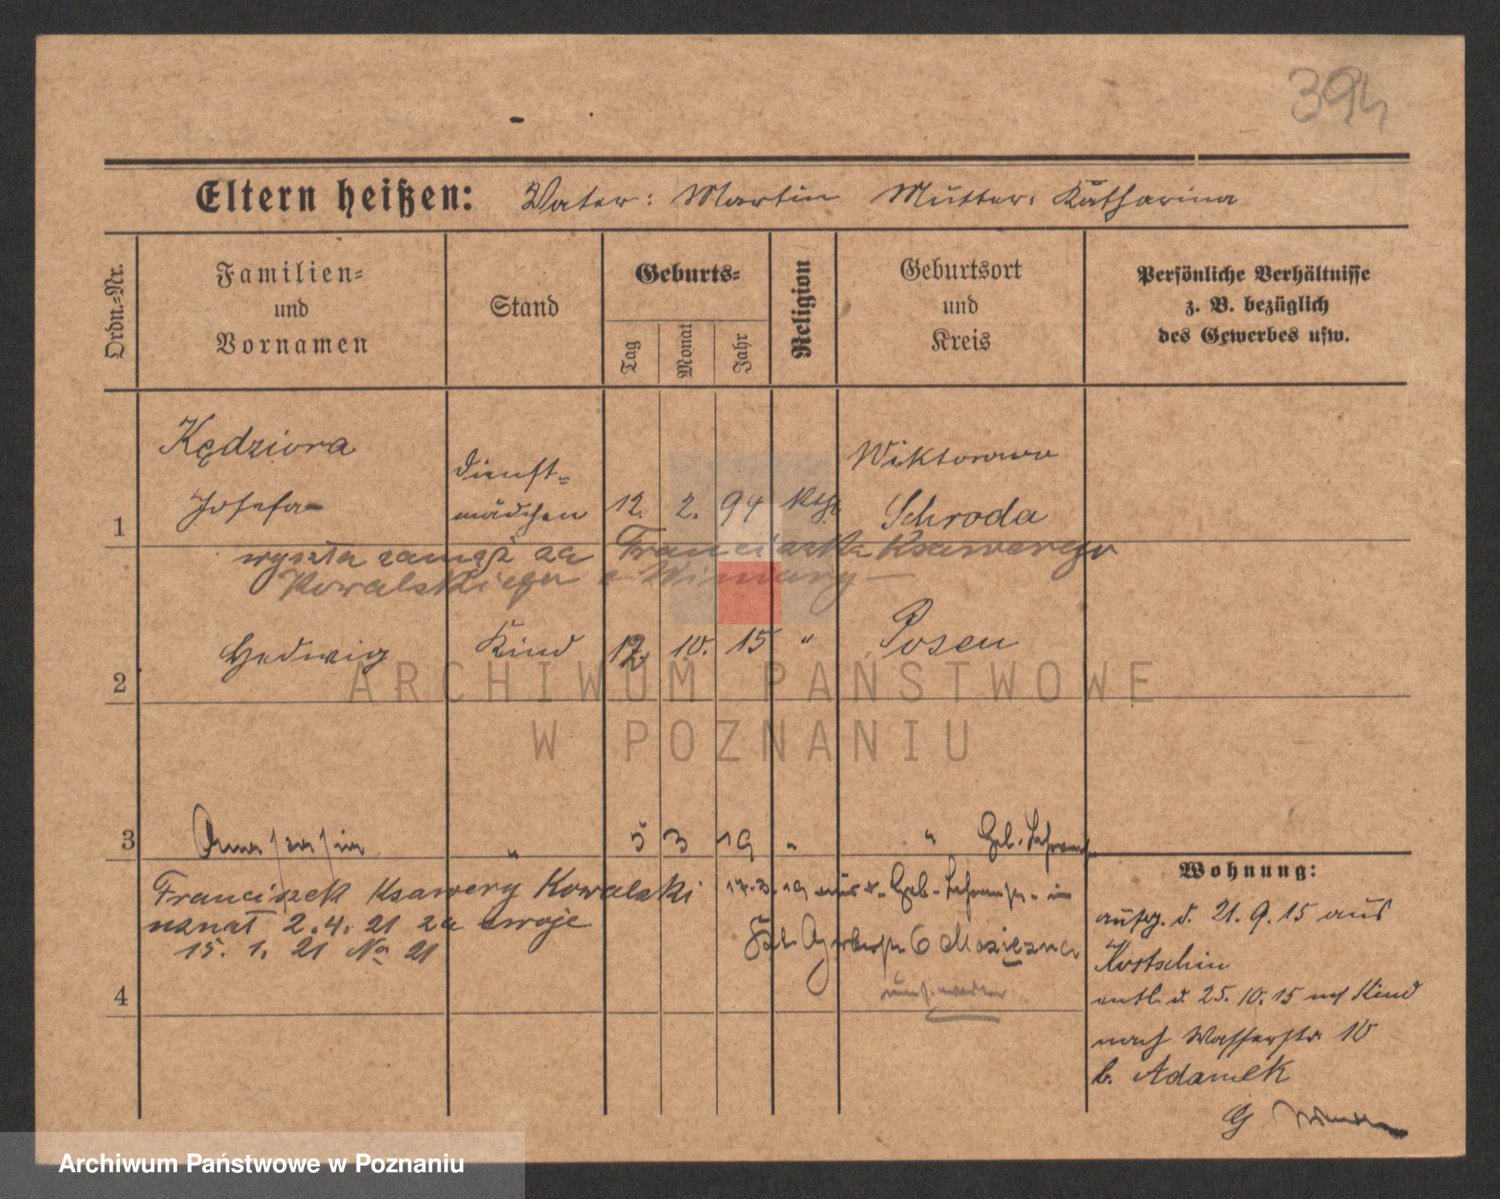 394
Eltern heißen: Vater: Martin Mutter: Katharina
Ordn.-Nr.
Familien- und Vornamen
Stand
Geburts-
Tag
Monat
Jahr
Religion
Geburtsort und Kreis
Persönliche Verhältnisse z. B. bezüglich des Gewerbes usw.
Kędziora
Wiktorowo
Dienst-
1 Josefa mädchen 12. 2. 94 kth. Schroda
wyszła zamąż za Franciszka Ksawerego
Kowalskiego z Winiary —
2 Hedwig Kind 12 10. 15 " Posen
ARCHIWUM PAŃSTWOWE
W POZNANIU
3 Anastasia " 5 3 19 " " Geb.
Franciszek Ksawery Kowalski 17.3.19 aus d. Geb. in
uznał 2.4.21 za swoje
15. 1. 21 No 21
6
4
Wohnung:
aufg. d. 21. 9. 15 aus
Kostschin
entl. d. 25. 10. 15 mit Kind
nach Wasserstr. 10
b. Adamek
Archiwum Państwowe w Poznaniu